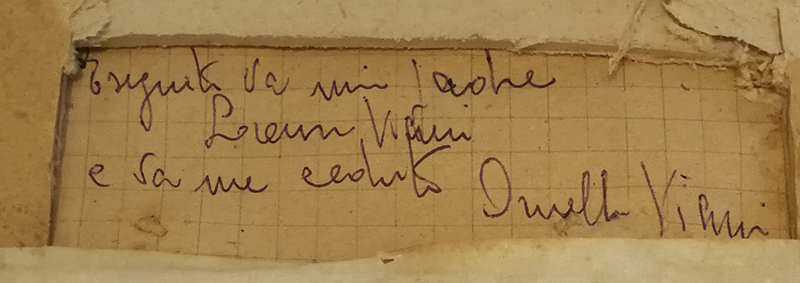 Eseguito da mio padre
Lorenzo Viani
e da me ceduto Ornella Viani